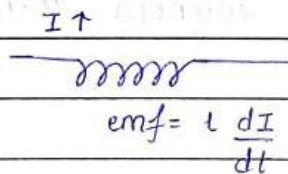 I ↑
emf = l dI/dt